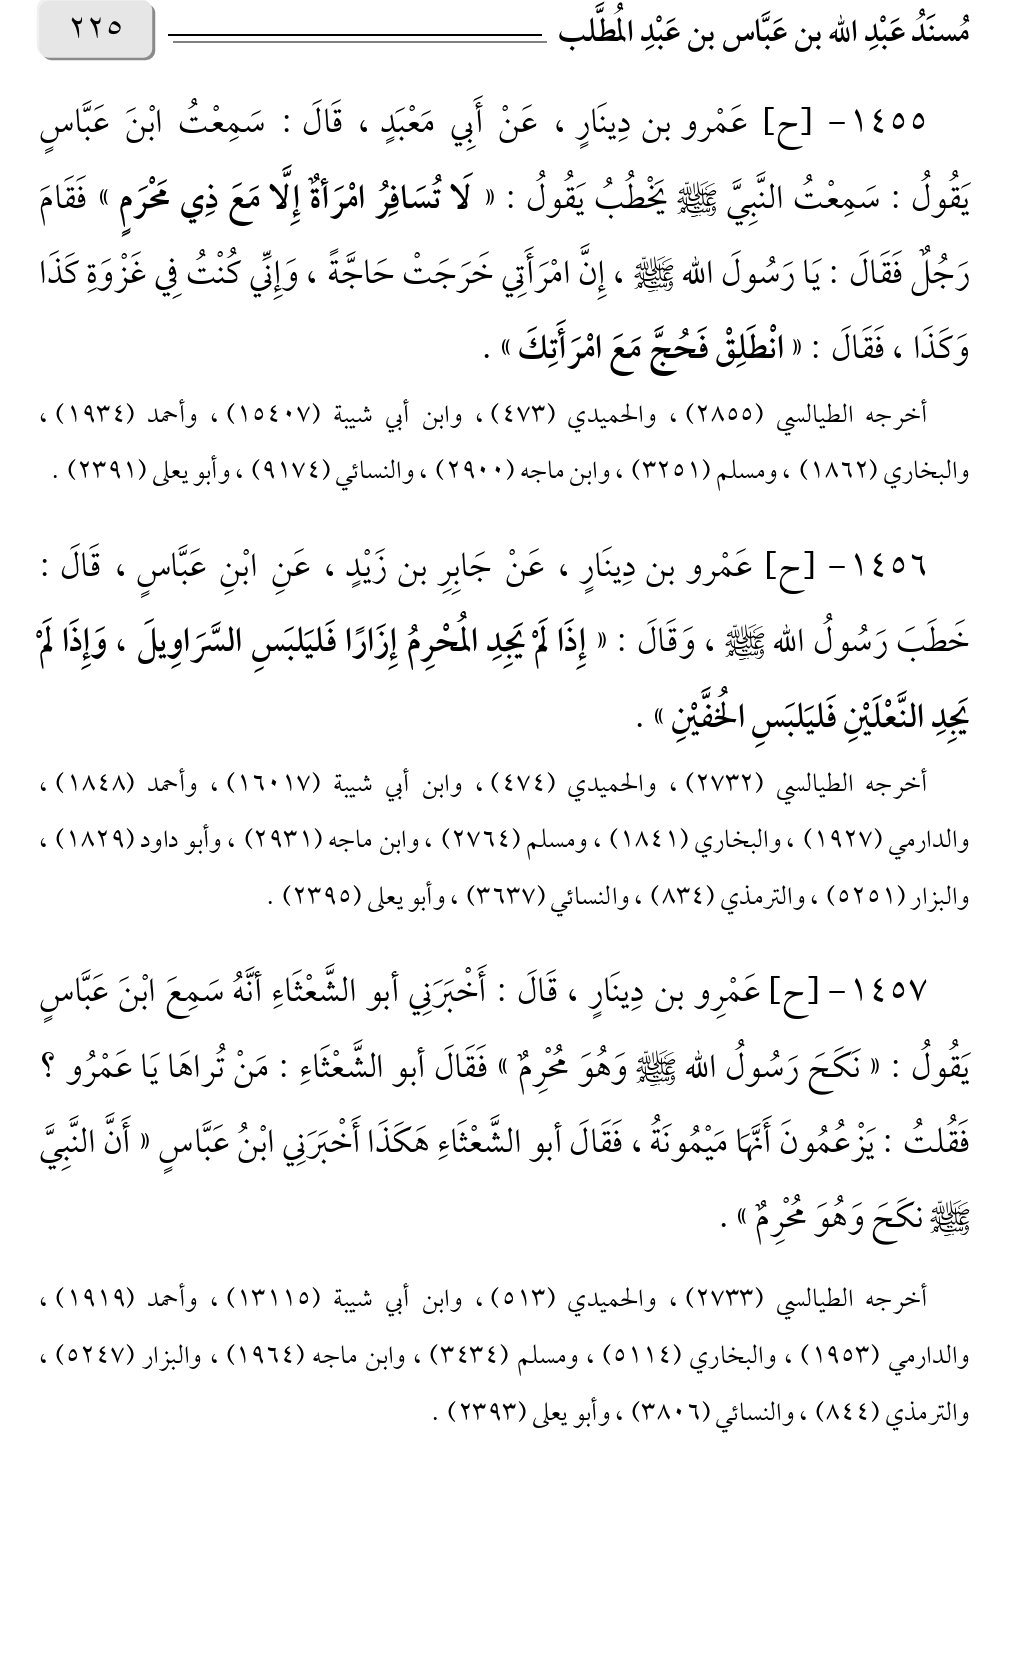 مُسنَدُ عَبْدِ الله بن عَبَّاس بن عَبْدِ المُطَّلب ٢٢٥
١٤٥٥- [ح] عَمْرو بن دِينَارٍ ، عَنْ أَبِي مَعْبَدٍ ، قَالَ : سَمِعْتُ ابْنَ عَبَّاسٍ
يَقُولُ : سَمِعْتُ النَّبِيَّ ﷺ يَخْطُبُ يَقُولُ : « لَا تُسَافِرُ امْرَأةٌ إِلَّا مَعَ ذِي مَحْرَمٍ » فَقَامَ
رَجُلٌ فَقَالَ : يَا رَسُولَ الله ﷺ ، إِنَّ امْرَأَتِي خَرَجَتْ حَاجَّةً ، وَإِنِّي كُنْتُ فِي غَزْوَةِ كَذَا
وَكَذَا ، فَقَالَ : « انْطَلِقْ فَحُجَّ مَعَ امْرَأَتِكَ » .
أخرجه الطيالسي (٢٨٥٥) ، والحميدي (٤٧٣) ، وابن أبي شيبة (١٥٤٠٧) ، وأحمد (١٩٣٤) ،
والبخاري (١٨٦٢) ، ومسلم (٣٢٥١) ، وابن ماجه (٢٩٠٠) ، والنسائي (٩١٧٤) ، وأبو يعلى (٢٣٩١) .
١٤٥٦- [ح] عَمْرو بن دِينَارٍ ، عَنْ جَابِرِ بن زَيْدٍ ، عَنِ ابْنِ عَبَّاسٍ ، قَالَ :
خَطَبَ رَسُولُ الله ﷺ ، وَقَالَ : « إِذَا لَمْ يَجِدِ المُحْرِمُ إِزَارًا فَليَلبَسِ السَّرَاوِيلَ ، وَإِذَا لَمْ
يَجِدِ النَّعْلَيْنِ فَليَلبَسِ الخُفَّيْنِ » .
أخرجه الطيالسي (٢٧٣٢) ، والحميدي (٤٧٤) ، وابن أبي شيبة (١٦٠١٧) ، وأحمد (١٨٤٨) ،
والدارمي (١٩٢٧) ، والبخاري (١٨٤١) ، ومسلم (٢٧٦٤) ، وابن ماجه (٢٩٣١) ، وأبو داود (١٨٢٩) ،
والبزار (٥٢٥١) ، والترمذي (٨٣٤) ، والنسائي (٣٦٣٧) ، وأبو يعلى (٢٣٩٥) .
١٤٥٧- [ح] عَمْرِو بن دِينَارٍ ، قَالَ : أَخْبَرَنِي أبو الشَّعْثَاءِ أنَّهُ سَمِعَ ابْنَ عَبَّاسٍ
يَقُولُ : « نَكَحَ رَسُولُ الله ﷺ وَهُوَ مُحْرِمٌ » فَقَالَ أبو الشَّعْثَاءِ : مَنْ تُراهَا يَا عَمْرُو ؟
فَقُلتُ : يَزْعُمُونَ أَنَّهَا مَيْمُونَةُ ، فَقَالَ أبو الشَّعْثَاءِ هَكَذَا أَخْبَرَنِي ابْنُ عَبَّاسٍ « أَنَّ النَّبِيَّ
ﷺ نكَحَ وَهُوَ مُحْرِمٌ » .
أخرجه الطيالسي (٢٧٣٣) ، والحميدي (٥١٣) ، وابن أبي شيبة (١٣١١٥) ، وأحمد (١٩١٩) ،
والدارمي (١٩٥٣) ، والبخاري (٥١١٤) ، ومسلم (٣٤٣٤) ، وابن ماجه (١٩٦٤) ، والبزار (٥٢٤٧) ،
والترمذي (٨٤٤) ، والنسائي (٣٨٠٦) ، وأبو يعلى (٢٣٩٣) .